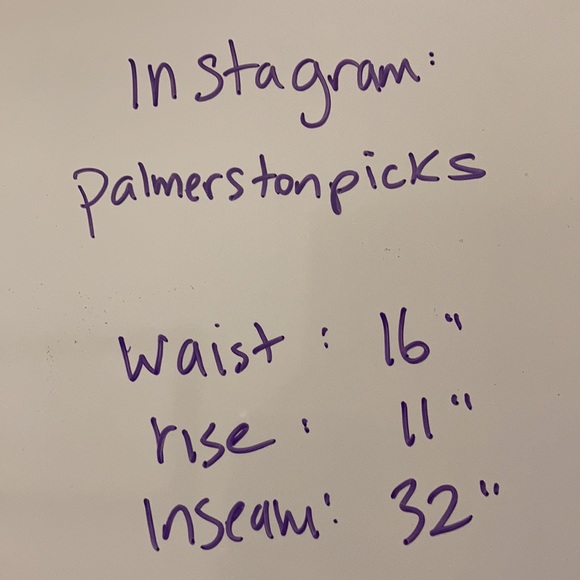 Instagram:
palmerstonpicks
waist : 16"
rise : 11"
Inseam: 32"